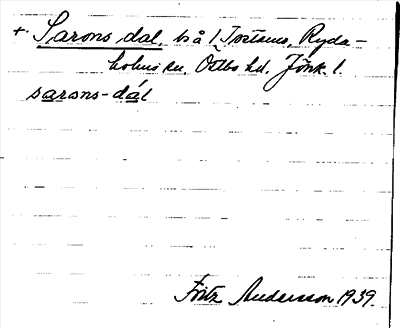 + Sarons dal, bså / Tretaus, Ryda-
holms sn. Östbo hd. Jönk. l.
sarons-dál
Fritz Andersson 1939.